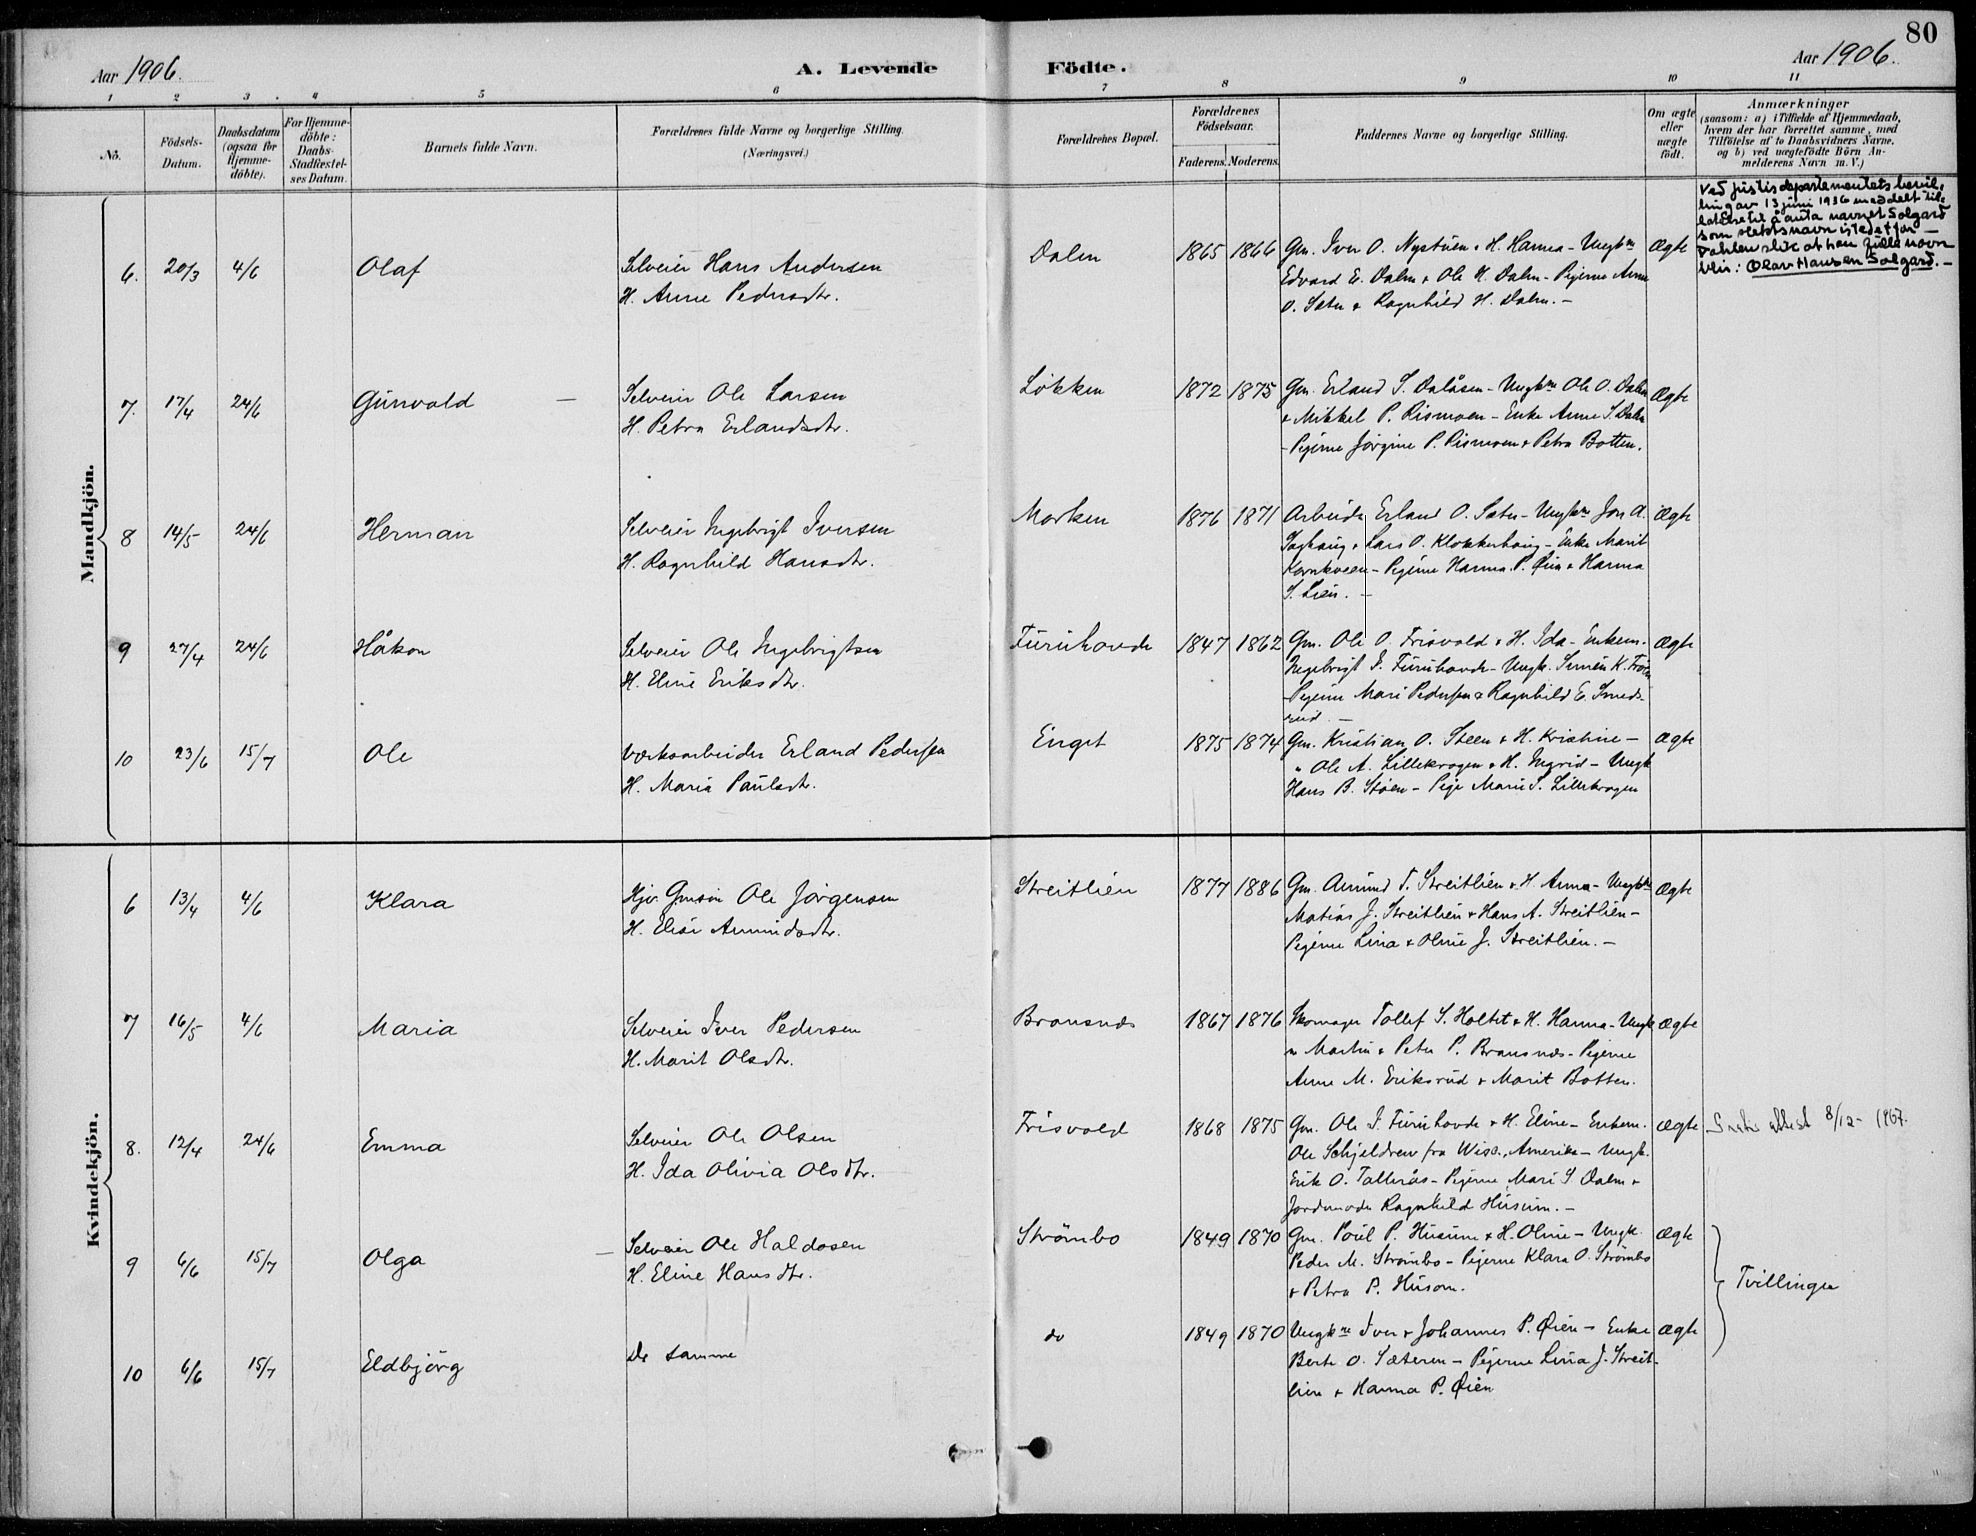 80
Aar 1906.
A. Levende
Födte.
Aar 1906.
1 2 3 4 5 6 7 8 9 10 11
Nô.
Födsels-
Datum.
Daabsdatum
(ogsaa for
Hjemme-
döbte).
For Hjemme-
döbte:
Daabs-
Stadfæstel-
ses Datum.
Barnets fulde Navn.
Forældrenes fulde Navne og borgerlige Stilling.
(Næringsvei.)
Forældrenes Bopæl.
Forældrenes
Födselsaar.
Faderens. Moderens.
Faddernes Navne og borgerlige Stilling.
Om ægte
eller
uægte
födt.
Anmærkninger
(saasom: a) i Tilfælde af Hjemmedaab,
hvem der har forrettet samme, med
Tilföielse af to Daabsvidners Navne,
og b) ved uægtefödte Börn An-
melderens Navn m. V.)
Mandkjön.
6. 20/3 4/6 Olaf
Selveier Hans Andersen
H. Anne Pedersdtr.
Dalen 1865 1866
Gm. Iver O. Nystuen & H. Hanna - Ungkne
Edvard E. Dalen & Ole H. Dalen - Pigerne Anne
O. Sæter & Ragnhild H. Dalen. -
Ægte
Ved justisdepartementets bevil-
ling av 13 juni 1936 meddelt til-
latelse til å anta navnet Solgard
som slektsnavn istedetfor -
Dahlen slik at han fulle navn
blir: Olav Hansen Solgard. -
7. 17/4 24/6 Gunvald -
Selveier Ole Larsen
H. Petra Erlandsdtr.
Løkken 1872 1875
Gm. Erland S. Dalåsen - Ungkne Ole O. Dalen
& Mikkel P. Rismoen - Enke Anne S. Dalen
- Pigerne Jørgine P. Rismoen & Petra Botten.
Ægte
8 14/5 24/6 Herman
Selveier Ingebrigt Iversen
H. Ragnhild Hansdtr.
Morken 1876 1871
Arbeider Erland O. Sæter - Ungkne Jon A.
& Lars O. Klokkerhaug - Enke Marit
Kornkveen - Pigerne Hanna P. Øien & Hanna
S. Lien. -
Ægte
9 27/4 24/6 Håkon
Selveier Ole Ingebrigtsen
H. Eline Eriksdtr.
Furuhovde 1847 1862
Gm. Ole O. Frisvold & H. Ida - Enkem.
Ingebrigt I. Furuhovde - Ungk. Simen K.
- Pigerne Mari Pedersen & Ragnhild E. Smeds-
rud. -
Ægte
10 23/6 15/7 Ole
Værksarbeider Erland Pedersen
H. Maria Paulsdtr.
Enget 1875 1874
Gm. Kristian O. Steen & H. Kristine -
" Ole A. Lillekrogen & H. Ingrid - Ungk
Hans B. Støen - Pige Marie S. Lillekrogen
Ægte
Kvindekjön.
6 13/4 4/6 Klara
Gmsøn Ole Jørgensen
H. Elise Amundsdtr.
Streitlien 1877 1886
Gm. Amund T. Streitlien & H. Anna - Ungkne
Matias J. Streitlien & Hans A. Streitlien -
Pigerne Lina & Oline J. Streitlien. -
Ægte
7 16/5 4/6 Maria
Selveier Iver Pedersen
H. Marit Olsdtr.
Bransnæs 1867 1876
Skomager Tollef S. Holtet & H. Hanna - Ungk
ne Martin & Peter P. Bransnæs - Pigerne
Anne M. Eriksrud & Marit Botten.
Ægte
8. 12/4 24/6 Emma
Selveier Ole Olsen
H. Ida Olivia Olsdtr.
Frisvold 1868 1875
Gm. Ole I. Furuhovde & H. Eline - Enkem.
Ole Schjeldren fra Wisc., Amerika - Ungk.
Erik O. Tallerås - Pigerne Mari S. Dalen &
Jordmoder Ragnhild Husum. -
Ægte
attest 8/12 - 1967.
9 6/6 15/7 Olga -
Selveier Ole Haldosen
H. Eline Hansdtr.
Strømbo 1849 1870
Gm. Poul P. Husum & H. Oline - Ungk.
Peder M. Strømbo - Pigerne Klara O. Strømbo
& Petra P. Husom.
Ægte
Tvillinger
10 6/6 15/7 Eldbjörg
De samme
do 1849 1870
Ungkne Iver & Johannes P. Øien - Enke
Berte O. Sæteren - Pigerne Lina J. Streit-
lien & Hanna P. Øien
Ægte